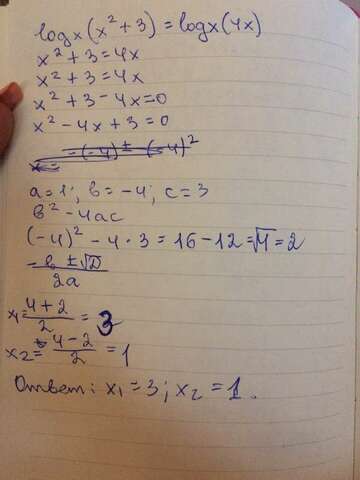 logx(x²+3)=logx(4x)
x²+3=4x
x²+3=4x
x²+3-4x=0
x²-4x+3=0
-(-4)±(-4)²
x=
a=1; b=-4; c=3
b²-4ac
(-4)²-4·3=16-12=√4=2
-b±√D
2a
x₁=4+2/2=3
x₂=4-2/2=1
Ответ: x₁=3; x₂=1.